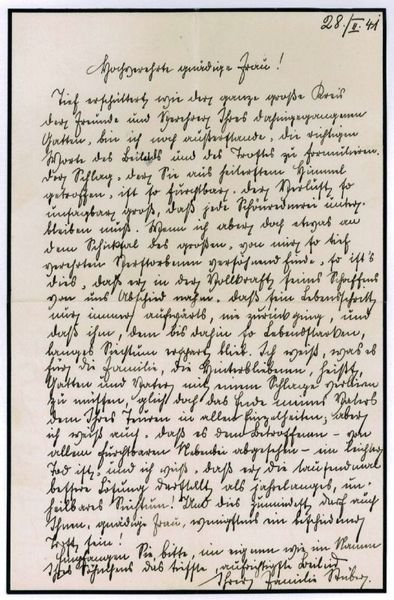 28./II.41
Hochverehrte gnädige Frau!
Tief erschüttert wie der ganze große Kreis
der Freunde und Verehrer Ihres dahingegangenen
Gatten, bin ich noch außerstande, die richtigen
Worte des Beileids und des Trostes zu formulieren.
Der Schlag, der Sie aus heiterstem Himmel
getroffen, ist so furchtbar, der Verlust so
unsagbar groß, daß jede Schönrednerei unter-
bleiben muß. Wenn ich aber doch etwas an
dem Schicksal des großen, von mir so tief
verehrten Verstorbenen versöhnend finde, so ist's
dies, daß er in der Vollkraft seines Schaffens
von uns Abschied nahm, daß sein Lebensschritt
nur immer aufwärts, nie zurück ging, und
daß ihm, dem bis dahin so Lebensstarken,
langes Siechtum erspart blieb. Ich weiß, was es
für die Familie, die Hinterbliebenen, heißt,
Gatten und Vater mit einem Schlage verlieren
zu müssen, glich doch das Ende meines Vaters
dem Ihres Teuren in allen Einzelheiten; aber
ich weiß auch, daß es dem Betroffenen – von
allem furchtbaren Nebenbei abgesehen – ein leichter
Tod ist, und ich weiß, daß er die tausendmal
bessere Lösung darstellt, als jahrelanges, un-
heilbares Siechtum! Und dies zumindest darf auch
Ihnen, gnädige Frau, wenigstens ein bescheidener
Trost sein!
Empfangen Sie bitte, im eignen wie im Namen
das tiefste, aufrichtigste Beileid
Ihrer Familie